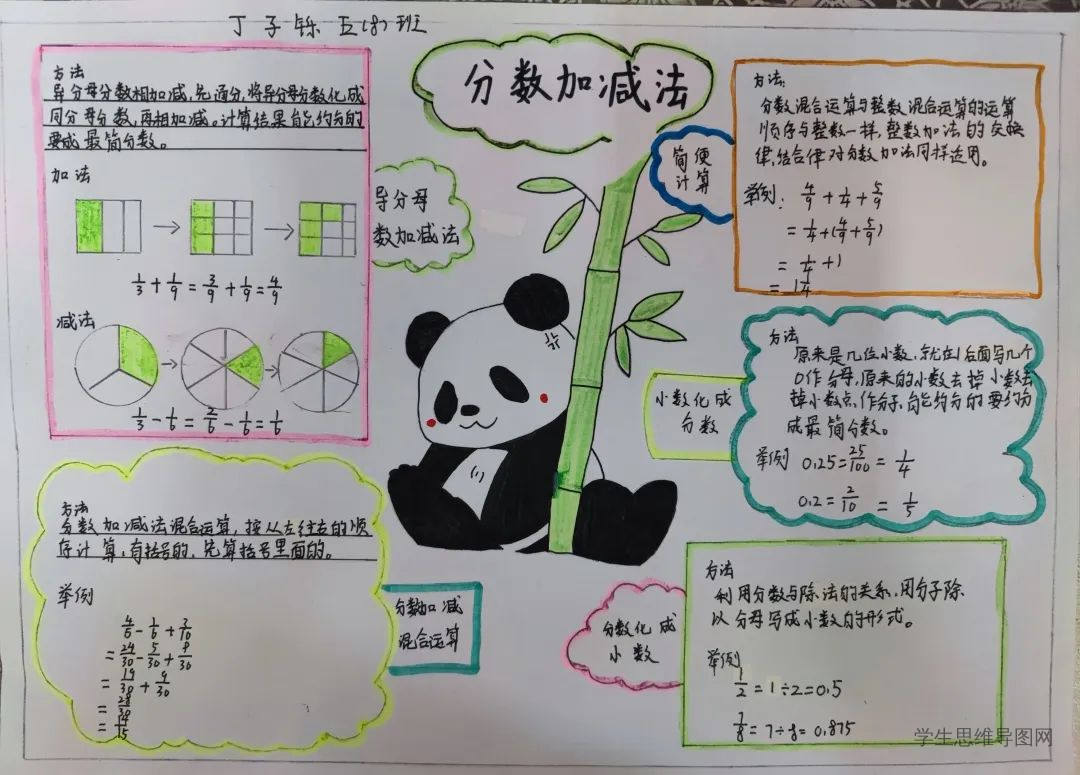 丁子铄 五(8)班
分数加减法
方法
异分母分数相加减,先通分,将异分母分数化成
同分母分数,再相加减。计算结果能约分的
要成最简分数。
加法
1/3+1/9=3/9+1/9=4/9
减法
1/3-1/6=2/6-1/6=1/6
异分母
数加减法
简便
计算
方法:
分数混合运算与整数混合运算的运算
顺序与整数一样,整数加法的交换
律,结合律对分数加法同样适用。
举例:
4/9+1/4+5/9
=1/4+(4/9+5/9)
=1/4+1
=1 1/4
小数化成
分数
方法
原来是几位小数,就在1后面写几个
0作分母,原来的小数去掉小数去
掉小数点,作分子,能约分的要约分
成最简分数。
举例 0.25=25/100=1/4
0.2=2/10=1/5
方法
分数加减法混合运算,按从左往右的顺
序计算,有括号的,先算括号里面的。
举例
4/5-1/6+3/10
=24/30-5/30+9/30
=19/30+9/30
=28/30
=14/15
分数加减
混合运算
分数化成
小数
方法
利用分数与除法的关系,用分子除
以分母写成小数的形式。
举例
1/2=1÷2=0.5
7/8=7÷8=0.875
学生思维导图网